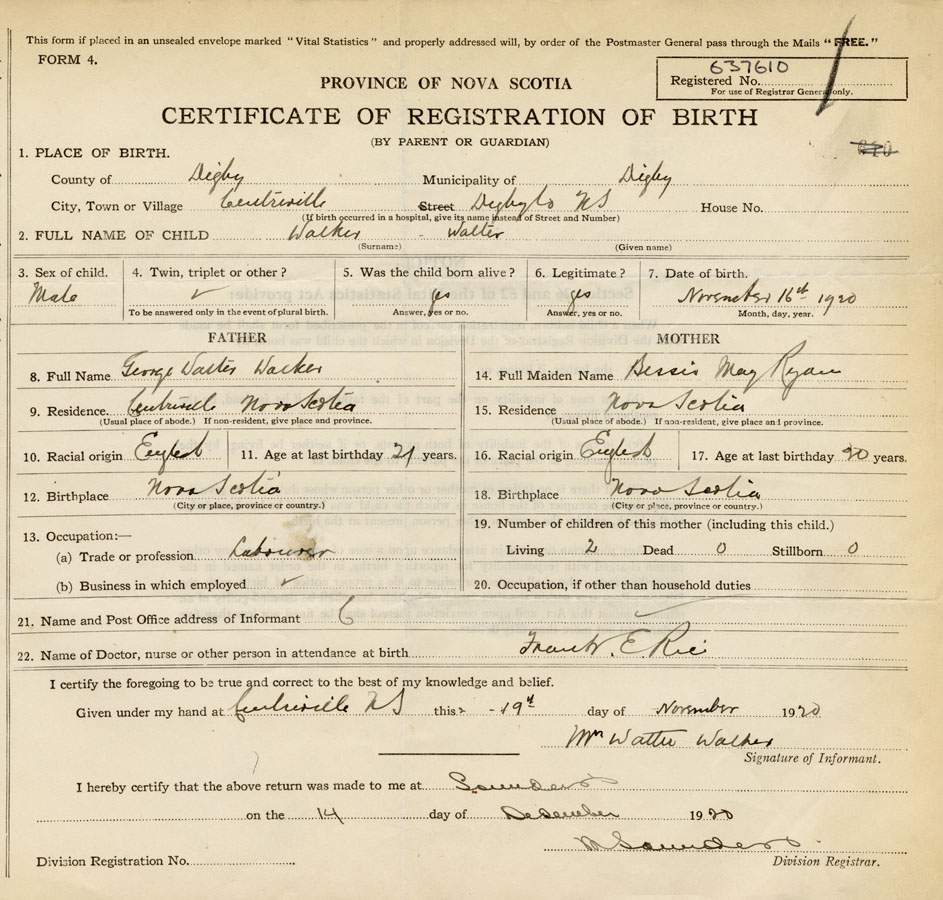 This form if placed in an unsealed envelope marked "Vital Statistics" and properly addressed will, by order of the Postmaster General pass through the Mails "FREE."
FORM 4.
637610
Registered No.
For use of Registrar General only.
PROVINCE OF NOVA SCOTIA
CERTIFICATE OF REGISTRATION OF BIRTH
(BY PARENT OR GUARDIAN)
1. PLACE OF BIRTH.
County of Digby Municipality of Digby
City, Town or Village Centreville Street Digby Co NS House No.
(If birth occurred in a hospital, give its name instead of Street and Number)
2. FULL NAME OF CHILD Walker - Walter
(Surname) (Given name)
3. Sex of child. 4. Twin, triplet or other? 5. Was the child born alive? 6. Legitimate? 7. Date of birth.
Male yes yes November 16th 1920
To be answered only in the event of plural birth. Answer, yes or no. Answer, yes or no. Month, day, year.
FATHER MOTHER
8. Full Name George Walter Walker 14. Full Maiden Name Bessie May Ryan
9. Residence. Centreville Nova Scotia 15. Residence Nova Scotia
(Usual place of abode.) If non-resident, give place and province. (Usual place of abode.) If non-resident, give place and province.
10. Racial origin English 11. Age at last birthday 21 years. 16. Racial origin English 17. Age at last birthday 20 years.
12. Birthplace Nova Scotia 18. Birthplace Nova Scotia
(City or place, province or country.) (City or place, province or country.)
13. Occupation:— 19. Number of children of this mother (including this child.)
(a) Trade or profession Labourer Living 2 Dead 0 Stillborn 0
(b) Business in which employed 20. Occupation, if other than household duties
21. Name and Post Office address of Informant
22. Name of Doctor, nurse or other person in attendance at birth Frank. E. Rice
I certify the foregoing to be true and correct to the best of my knowledge and belief.
Given under my hand at Centreville NS this - 19th day of November 1920
Mrs Walter Walker
Signature of Informant.
I hereby certify that the above return was made to me at Saunders
on the 14 day of December 1920
Saunders
Division Registration No. Division Registrar.